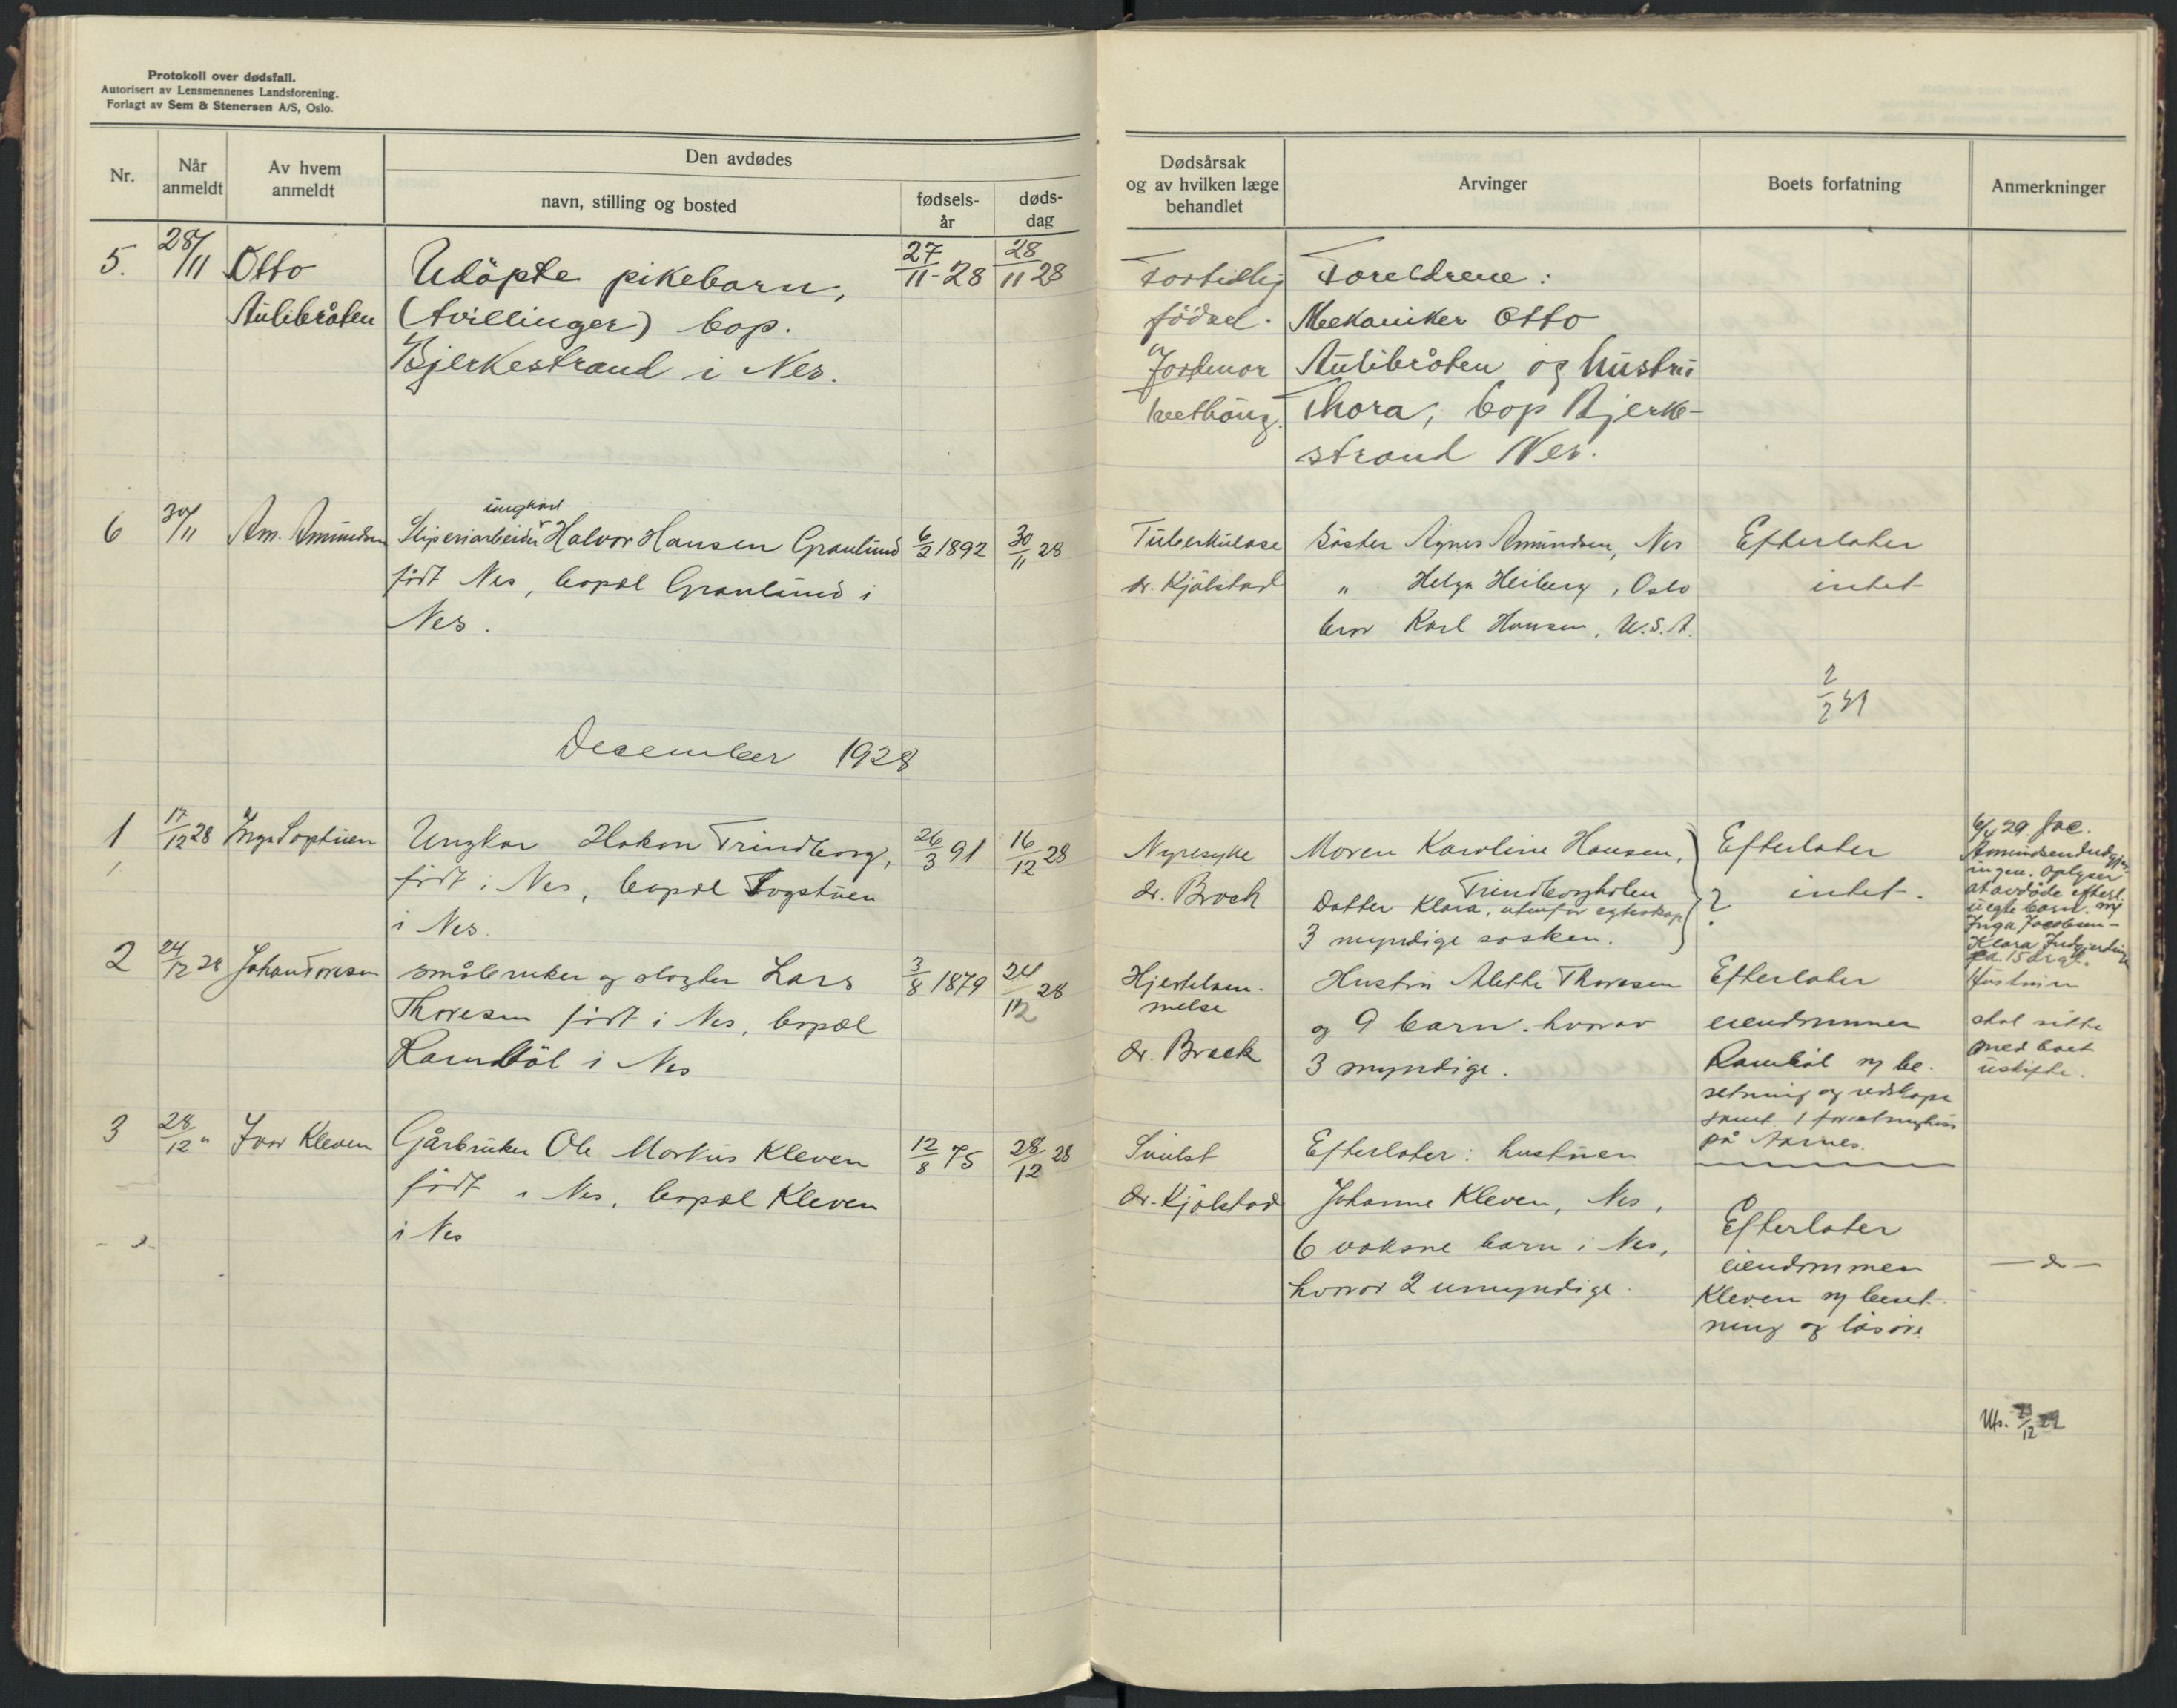 Protokoll over dødsfall.
Autorisert av Lensmennenes Landsforening.
Forlagt av Sem & Stenersen A/S, Oslo.
Nr.
Når anmeldt
Av hvem anmeldt
Den avdødes
navn, stilling og bosted
fødsels-år
døds-dag
Dødsårsak og av hvilken læge behandlet
Arvinger
Boets forfatning
Anmerkninger
5.
28/11
Otto
Aulibråten
Udöpte pikebarn,
(tvillinger) bop.
Bjerkestrand i Nes.
27/11-28
28/11 28
Fortidlig
födsel.
Jordmor
Foreldrene:
Mekaniker Otto
Aulibråten og hustru
Thora, bop Bjerke-
strand Nes.
6
30/11
Am. Amundsen
ungkar
Sliperiarbeider Halvor Hansen Granlund
født Nes, bopæl Granlund i
Nes.
6/2 1892
30/11 28
Tuberkulose
dr. Kjølstad
Søster Agnes Amundsen, Nes
" Helga Heiberg, Oslo
bror Karl Hansen, U.S.A.
Efterlater
intet
2/2 31
December 1928
1
17/12 28
Inga Togstuen
Ungkar Hakon Trindborg,
født i Nes, bopæl Togstuen
i Nes.
26/3 91
16/12 28
Nyresyke
dr. Brock
Moren Karoline Hansen,
Trindborgholen
Datter Klara, utenfor egteskap
3 myndige søsken.
?
Efterlater
intet.
6/4 29 Jac.
Amundsen
Oplyser
at avdøde efterl.
uegte barn
Inga Jacobsen -
Klara
ca. 15 år gl.
2
24/12 28
Johan Toresen
småbruker og slagter Lars
Thoresen født i Nes, bopæl
Rambøl i Nes
3/8 1879
24/12 28
Hjertelam-
melse
dr. Brock
Hustru Alette Thoresen
og 9 barn. hvorav
3 myndige.
Efterlater
eiendommen
Rambøl og be-
setning og redskaper
samt 1 forretningshus
på Aarnes.
Hustruen
skal sitte
med boet
uskifte.
3
28/12 "
Ivar Kleven
Gårbruker Ole Markus Kleven
født i Nes, bopæl Kleven
i Nes
12/8 75
28/12 28
Svulst
dr. Kjølstad
Efterlater: hustruen
Johanne Kleven, Nes,
6 voksne barn i Nes,
hvorav 2 umyndige.
Efterlater
eiendommen
Kleven og beset-
ning og løsøre
— " —